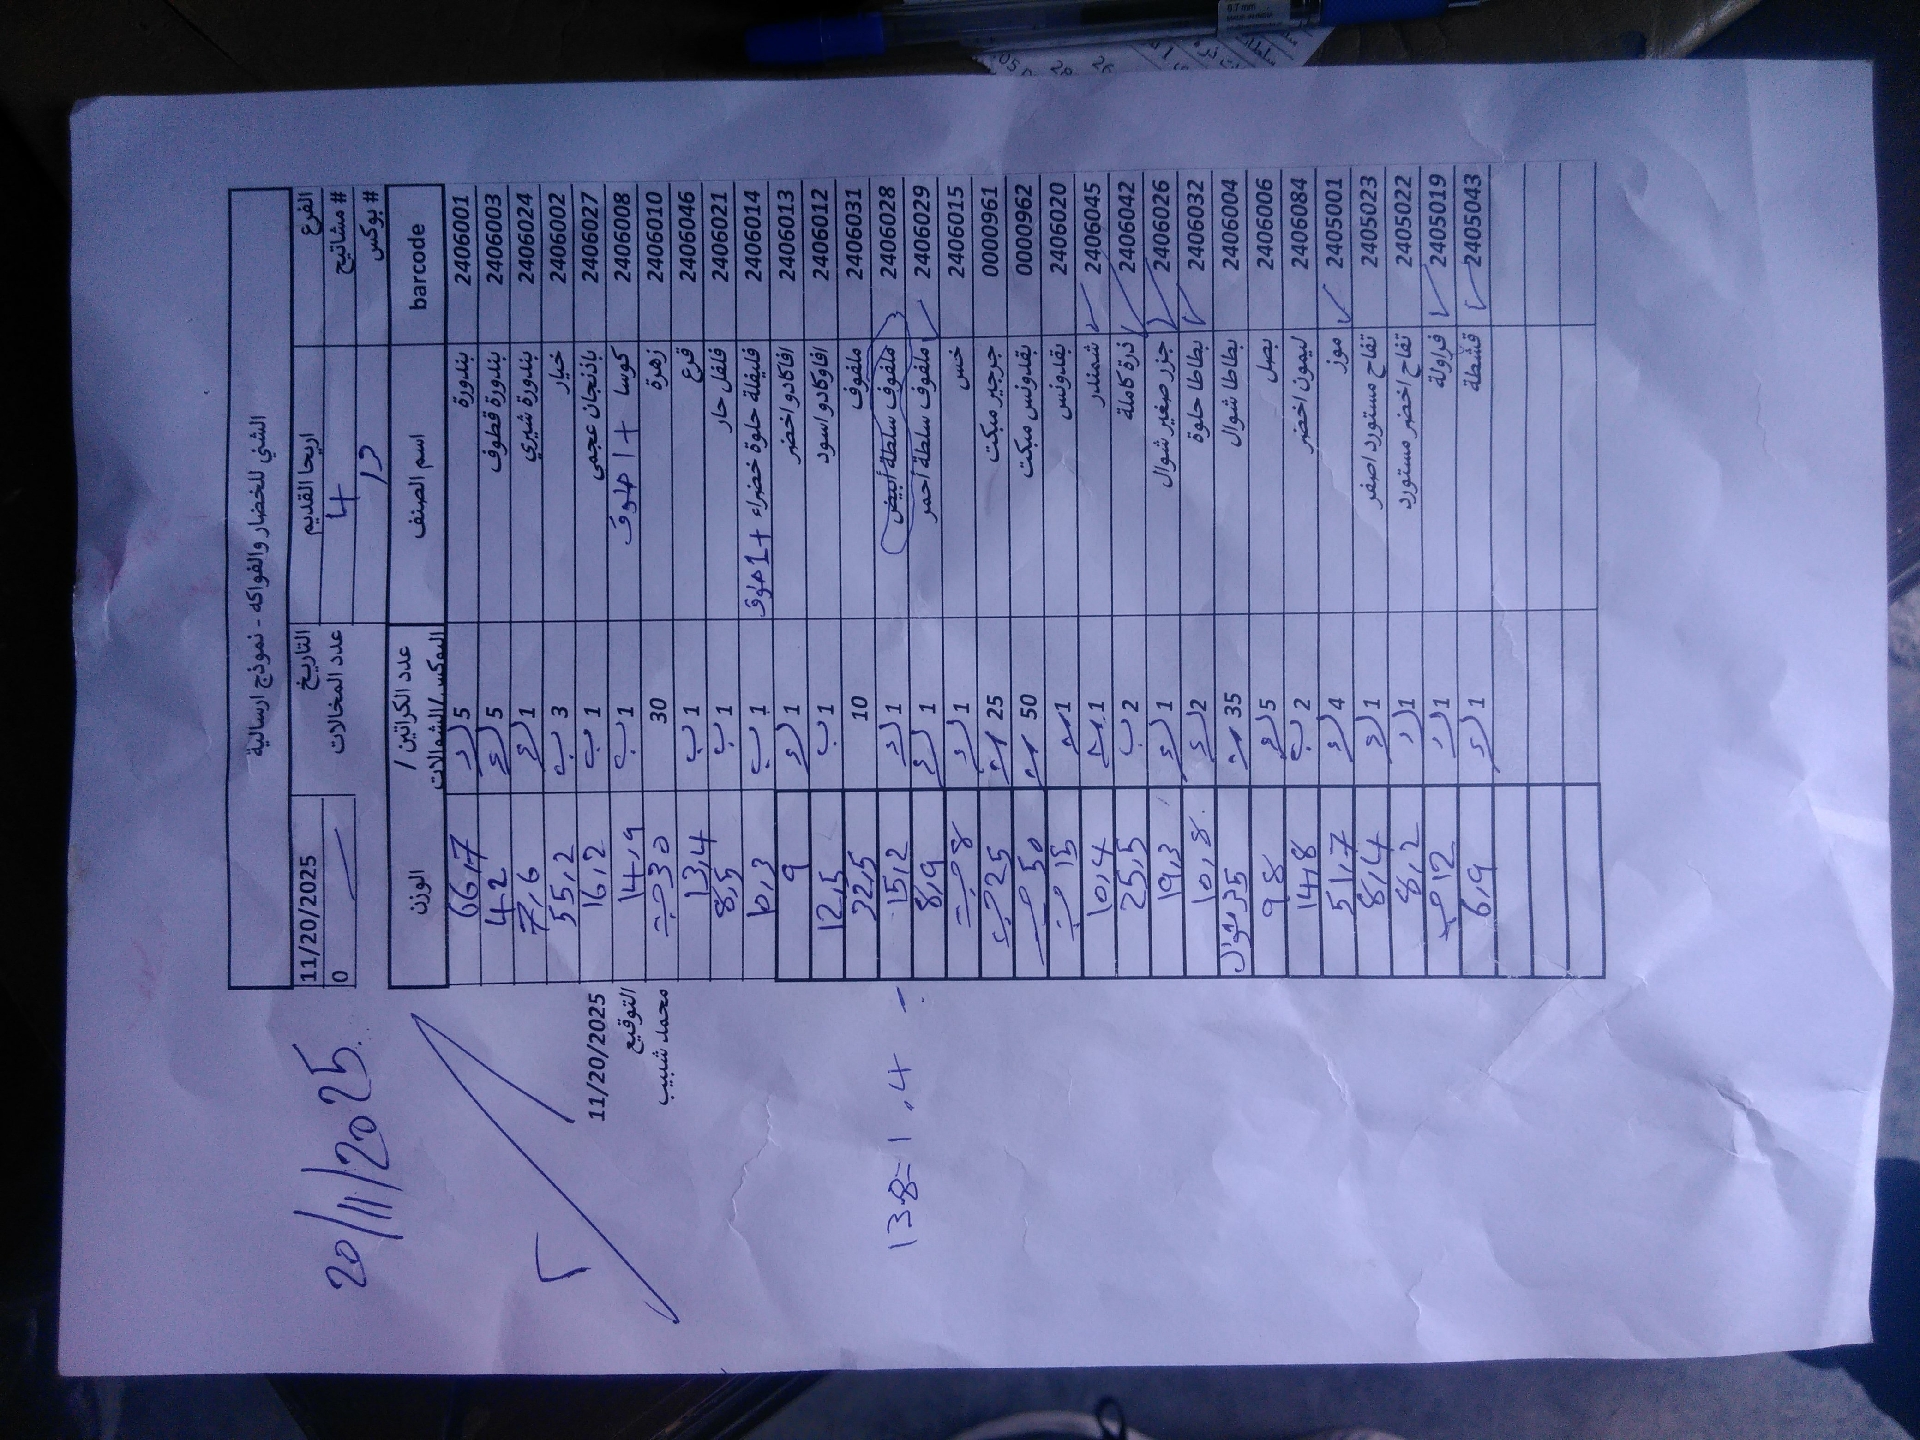 الشني للخضار والفواكه - نموذج ارسالية
الفرع اريحا القديم التاريخ 11/20/2025
# مشاتيح 4 عدد المخالات 0
# بوكس
barcode اسم الصنف عدد الكراتين / البوكس/الشوالات الوزن
2406001 بندورة 5 66,7
2406003 بندورة قطوف 5 42
2406024 بندورة شيري 1 7,6
2406002 خيار 3 ب 55,2
2406027 باذنجان عجمي 1 ب 16,2
2406008 كوسا + 1 طوق 1 ب 14,9
2406010 زهرة 30 30 حبة
2406046 قرع 1 ب 13,4
2406021 فلفل حار 1 ب 8,5
2406014 فليفلة حلوة خضراء + 1 طوق 1 ب
2406013 افاكادو اخضر 1 9
2406012 افاوكادو اسود 1 ب 12,5
2406031 ملفوف 10 32,5
2406028 ملفوف سلطة أبيض 1 15,2
2406029 ملفوف سلطة احمر 1 8,9
2406015 خس 1 8
0000961 جرجير مبكت 25 25
0000962 بقدونس مبكت 50 50
2406020 بقدونس 1 15
2406045 شمندر 1 10,4
2406042 ذرة كاملة 2 ب 25,5
2406026 جزر صغير شوال 1 19,3
2406032 بطاطا حلوة 2 10,8
2406004 بطاطا شوال 35 35 شوال
2406006 بصل 5 98
2406084 ليمون اخضر 2 ب 14,8
2405001 موز 4 51,7
2405023 تفاح مستورد اصفر 1 8,4
2405022 تفاح اخضر مستورد 1 8,2
2405019 فراولة 1 12
2405043 قشطة 1 6,9
20/11/2025
11/20/2025
التوقيع
محمد شبيب
138=1,4